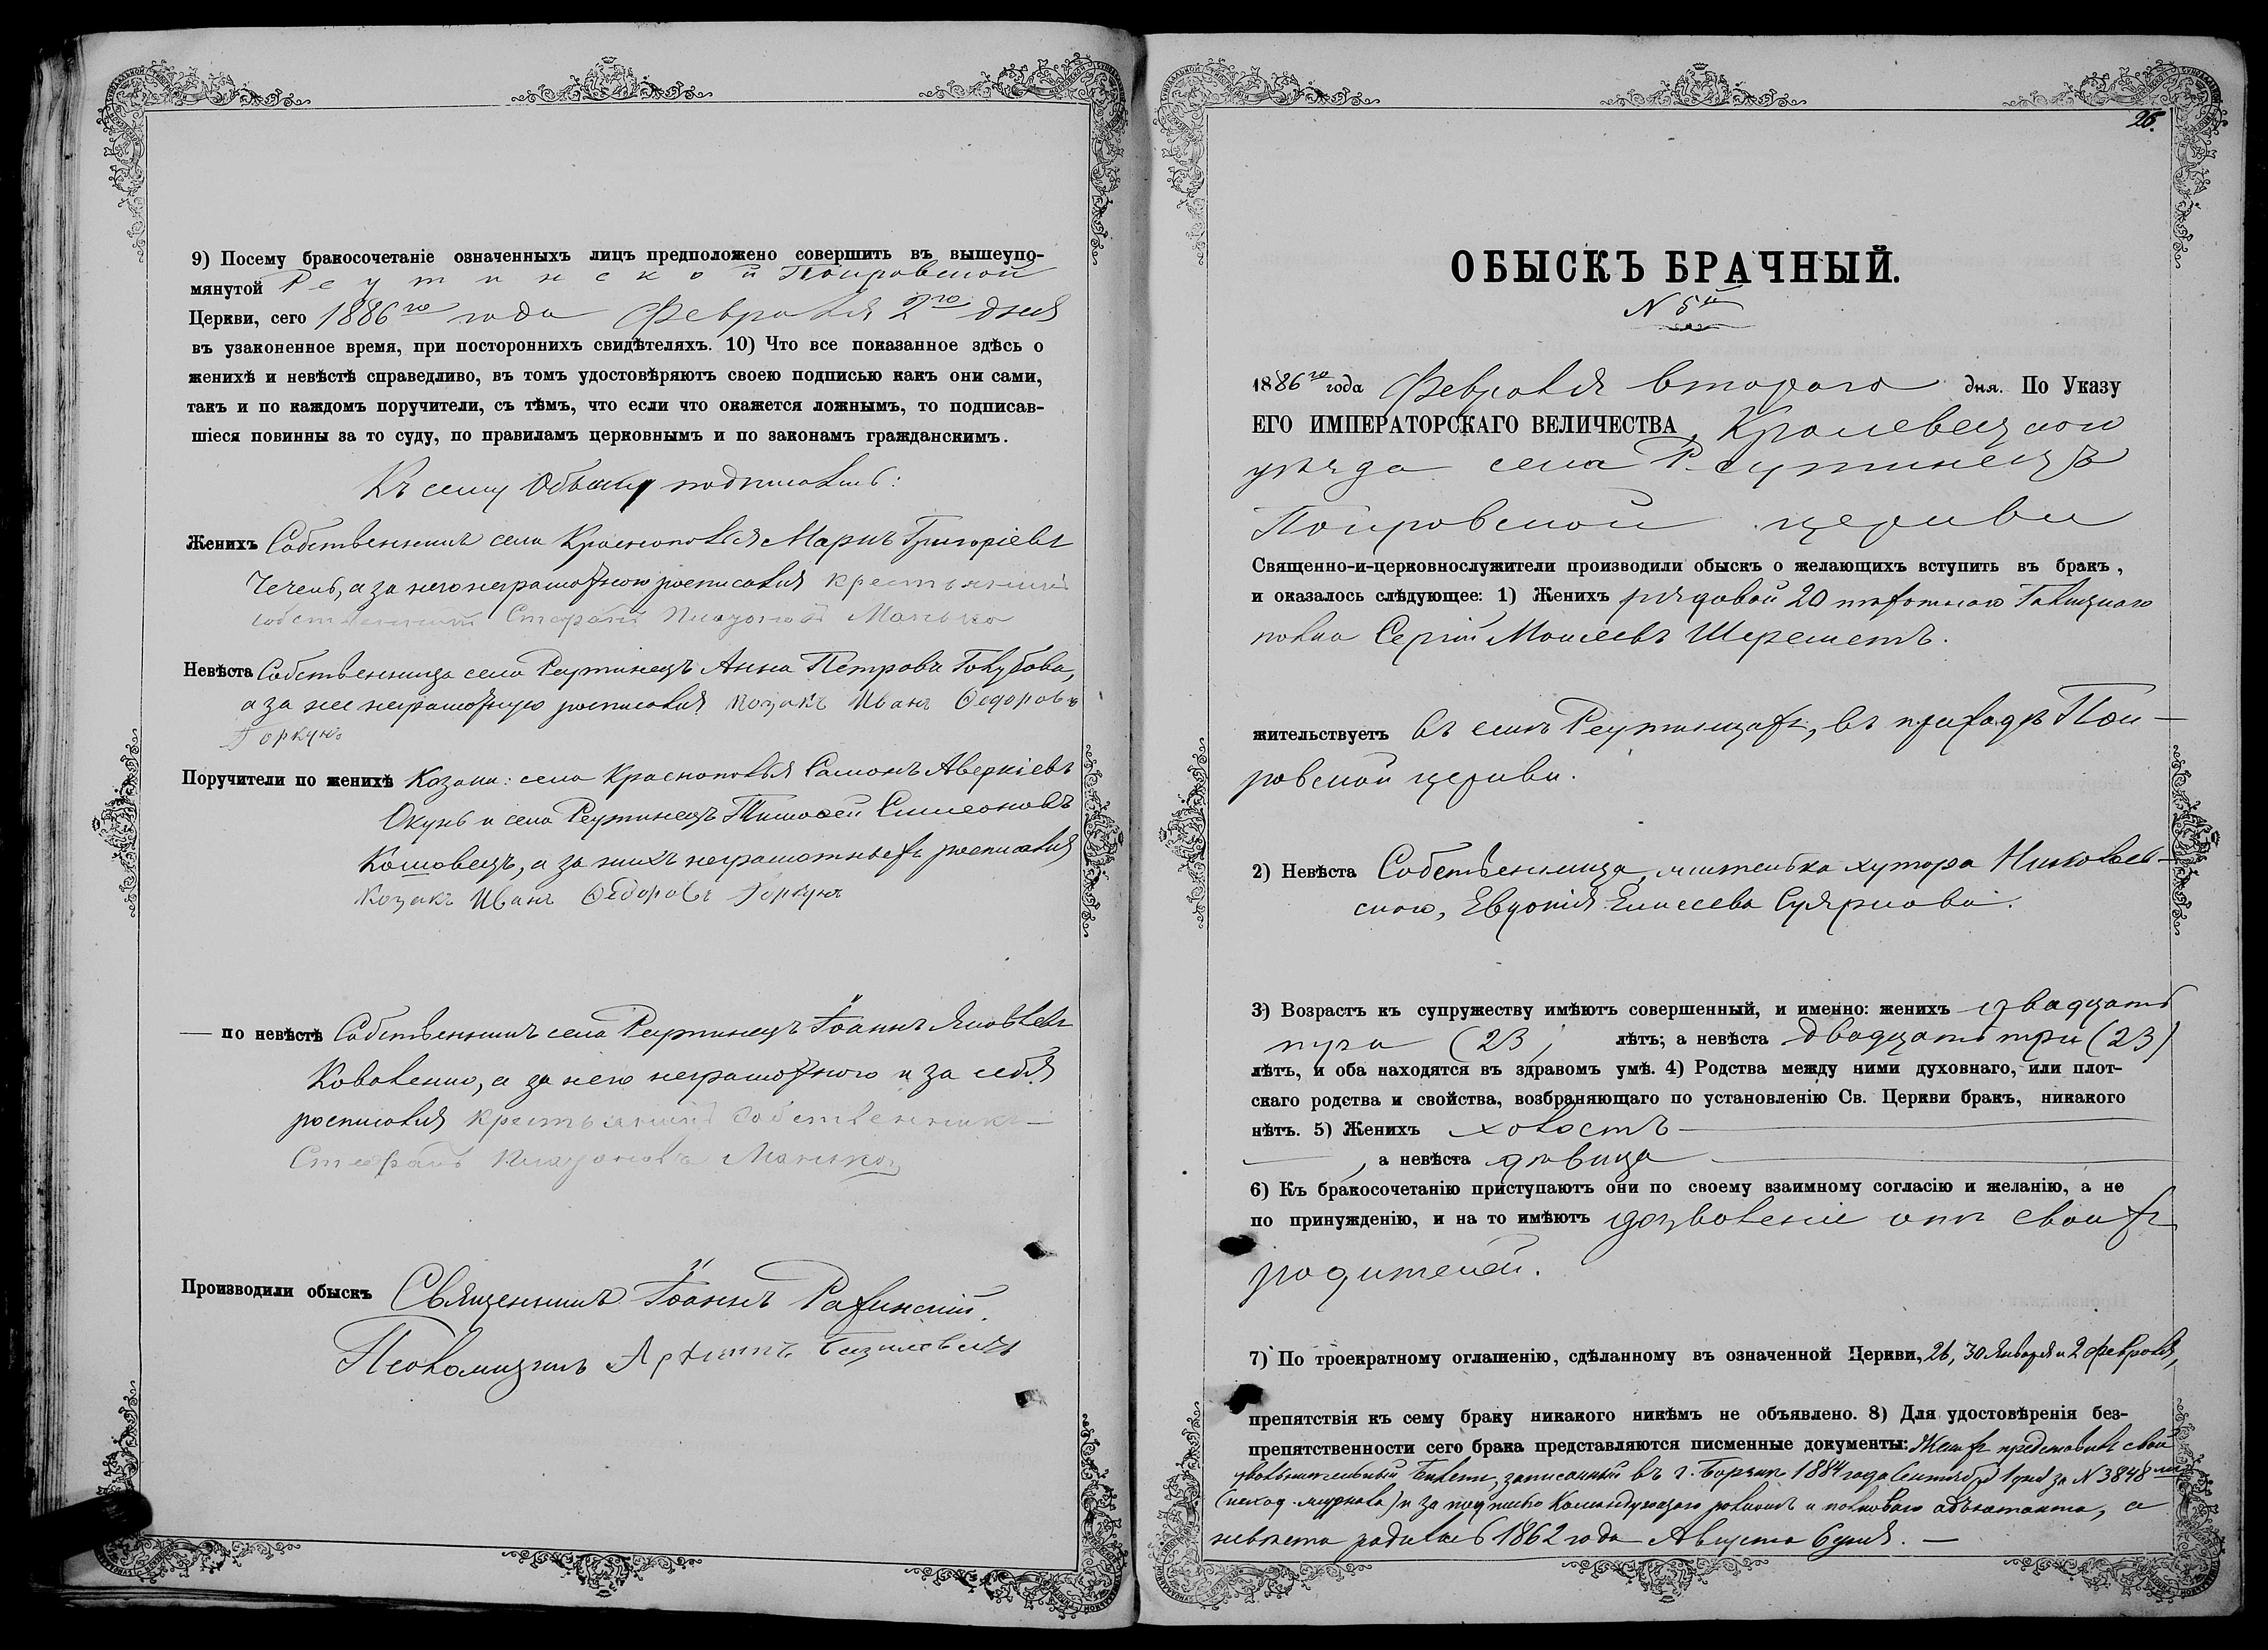 9) Посему бракосочетаніе означенныхъ лицъ предположено совершить въ вышеупо-
мянутой Реутинской Покровской
Церкви, сего 1886го года Февраля 2го дня
въ узаконенное время, при постороннихъ свидѣтеляхъ. 10) Что все показанное здѣсь о
женихѣ и невѣстѣ справедливо, въ томъ удостовѣряютъ своею подписью какъ они сами,
такъ и по каждомъ поручители, съ тѣмъ, что если что окажется ложнымъ, то подписав-
шіеся повинны за то суду, по правиламъ церковнымъ и по законамъ гражданскимъ.
Къ сему Обыску подписались:
Женихъ Собственникъ села Краснополья Маркъ Григоріевъ
Чечень, а за него неграмотного росписался крестьянинъ
собственникъ Стефанъ Манько
Невѣста Собственница села Реутинецъ Анна Петрова Голубова,
а за нее неграмотную росписался козакъ Иванъ Ѳедоровъ
Горкунъ
Поручители по женихѣ Козаки: села Краснополья Самонъ Аверкіевъ
Окунь и села Реутинецъ Тимоѳей Симеоновъ
Кошовецъ, а за нихъ неграмотныхъ росписался
Козакъ Иванъ Ѳедоровъ Горкунъ
— по невѣстѣ Собственникъ села Реутинецъ Іоаннъ Яковлевъ
Коваленко, а за него неграмотного и за себя
росписался крестьянинъ собственникъ
Стефанъ Манько
Производили обыскъ Священникъ Іоаннъ
Псаломщикъ Архипъ Базилевичъ
26.
ОБЫСКЪ БРАЧНЫЙ.
N 5й
1886го года Февраля втораго дня. По Указу
ЕГО ИМПЕРАТОРСКАГО ВЕЛИЧЕСТВА, Кролевецкого
уѣзда села Реутинецъ
Покровской церкви
Священно-и-церковнослужители производили обыскъ о желающихъ вступить въ бракъ,
и оказалось слѣдующее: 1) Женихъ рядовой 20 пѣхотнаго Галицкаго
полка Сергій Моисеевъ Шереметъ.
жительствуетъ въ селѣ Реутинцахъ, въ приходѣ Пок-
ровской церкви.
2) Невѣста Собственница, жителька хутора Николаев-
ского, Евдокія Елисеева Суяркова.
3) Возрастъ къ супружеству имѣютъ совершенный, и именно: женихъ двадцать
три (23) лѣтъ; а невѣста двадцать три (23)
лѣтъ, и оба находятся въ здравомъ умѣ. 4) Родства между ними духовнаго, или плот-
скаго родства и свойства, возбраняющаго по установленію Св. Церкви бракъ, никакого
нѣтъ. 5) Женихъ холостъ
, а невѣста дѣвица
6) Къ бракосочетанію приступаютъ они по своему взаимному согласію и желанію, а не
по принужденію, и на то имѣютъ дозволеніе отъ своихъ
родителей.
7) По троекратному оглашенію, сдѣланному въ означенной Церкви, 26, 30 Января и 2 Февраля,
препятствія къ сему браку никакого никѣмъ не объявлено. 8) Для удостовѣренія без-
препятственности сего брака представляются писменные документы: Женихъ представилъ свой
увольнительный билетъ, записанный въ г. Борзнѣ 1884 года Сентября 1 дня за N 3848
(исход. журнала) и за подписью Командующаго полкомъ и полковаго адъютанта, а
невѣста родилась 1862 года Августа 6 дня. —